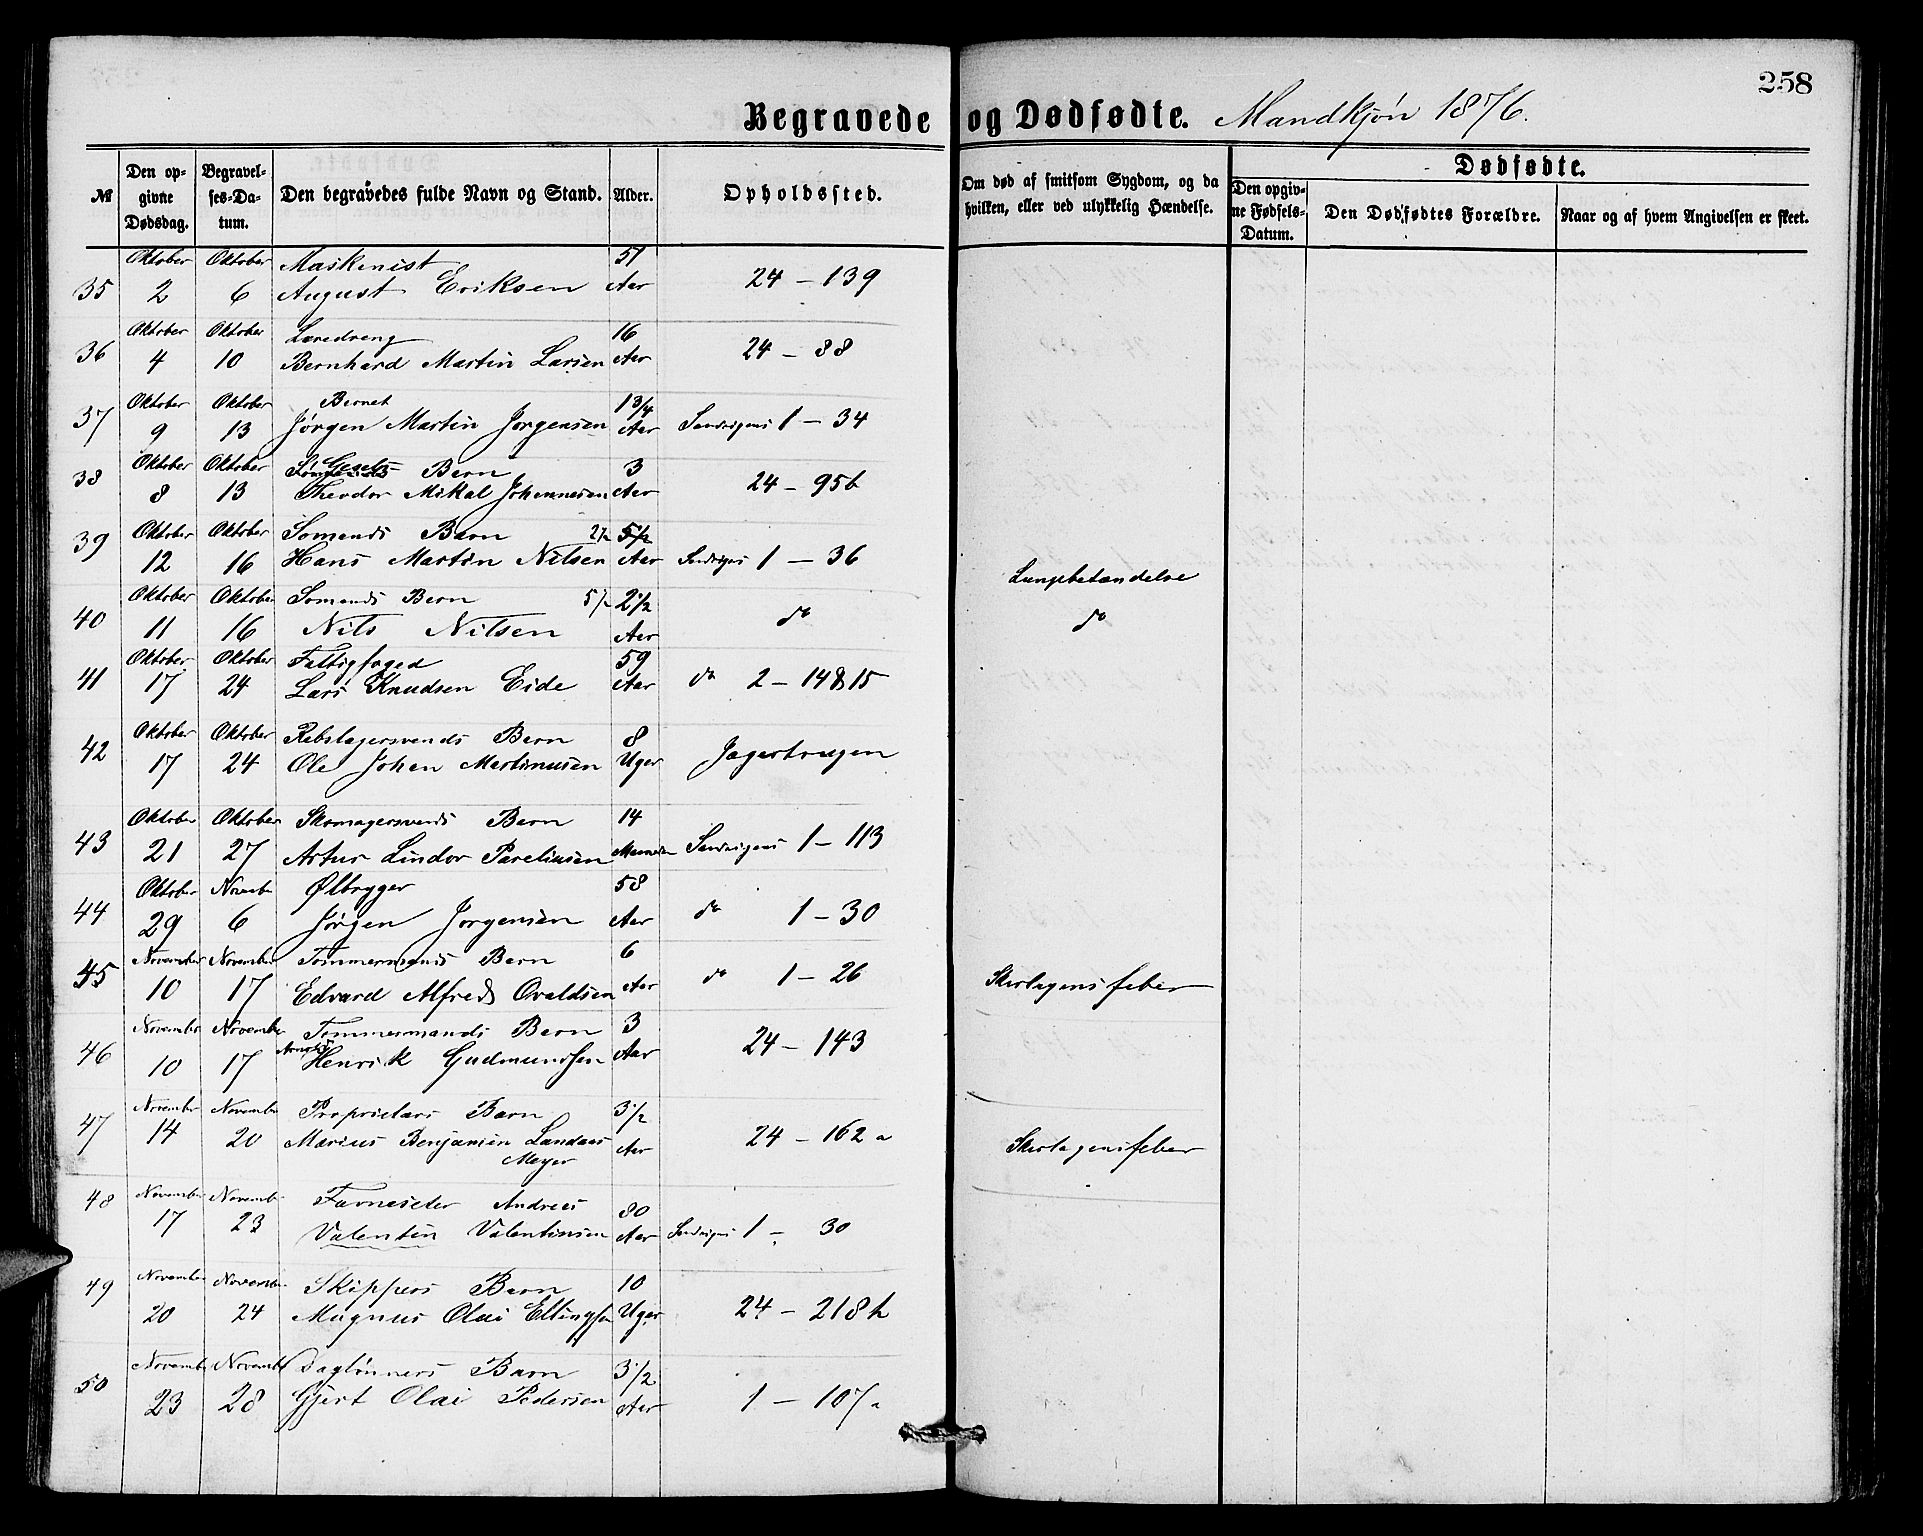 258
Begravede og Dødfødte. Mandkjøn 1876.
№ Den opgivne Dødsdag. Begravelses-Datum. Den begravedes fulde Navn og Stand. Alder. Opholdssted. Om død af smitsom Sygdom, og da hvilken, eller ved ulykkelig Hændelse. Dødfødte.
Den opgivne Fødsels-Datum. Den Dødfødtes Forældre. Naar og af hvem Angivelsen er skeet.
Oktober Oktober Maskinist 51
35 2 6 August Eriksen Aar 24 - 139
Oktober Oktober Læredreng 16
36 4 10 Bernhard Martin Larsen Aar 24 - 88
Oktober Oktober Barnet 1 3/4
37 9 13 Jørgen Martin Jørgensen Aar Sandvigens 1 - 34
Oktober Oktober Barn 3
38 8 13 Theodor Mikal Johannesen Aar 24 - 95b
Oktober Oktober Sømands Barn 2 1/2 5 1/2
39 12 16 Hans Martin Nilsen Aar Sandvigens 1 - 36 Lungebetændelse
Oktober Oktober Sømands Barn 5 1/2 2 1/2
40 11 16 Nils Nilsen Aar do do
Oktober Oktober Fattigfoged 59
41 17 24 Lars Knudsen Eide Aar do 2 - 14815
Oktober Oktober Rebslagersvends Barn 8
42 17 24 Ole Johan Martinusen Uger
Oktober Oktober Skomagersvends Barn 14
43 21 27 Artur Lindor Pareliusen Maaneder Sandvigens 1 - 113
Oktober Novembr Ølbrygger 58
44 29 6 Jørgen Jørgensen Aar do 1 - 30
November November Tømmermands Barn 6
45 10 17 Edvard Alfred Ovaldsen Aar do 1 - 26 Skarlagensfeber
November November Tømmermands Barn 3
46 10 17 Henrik Gudmundsen Aar 24 - 143
November November Proprietærs Barn 3 1/2
47 14 20 Marius Benjamin Landaas Meyer Aar 24 - 162 a Skarlagensfeber
November November Andreas 80
48 17 23 Valentin Valentinsen Aar Sandvigens 1 - 30
November November Skippers Barn 10
49 20 24 Magnus Olai Ellingsen Uger 24 - 218 h
November November Daglønners Barn 3 1/2
50 23 28 Gjert Olai Pedersen Aar 1 - 107 a